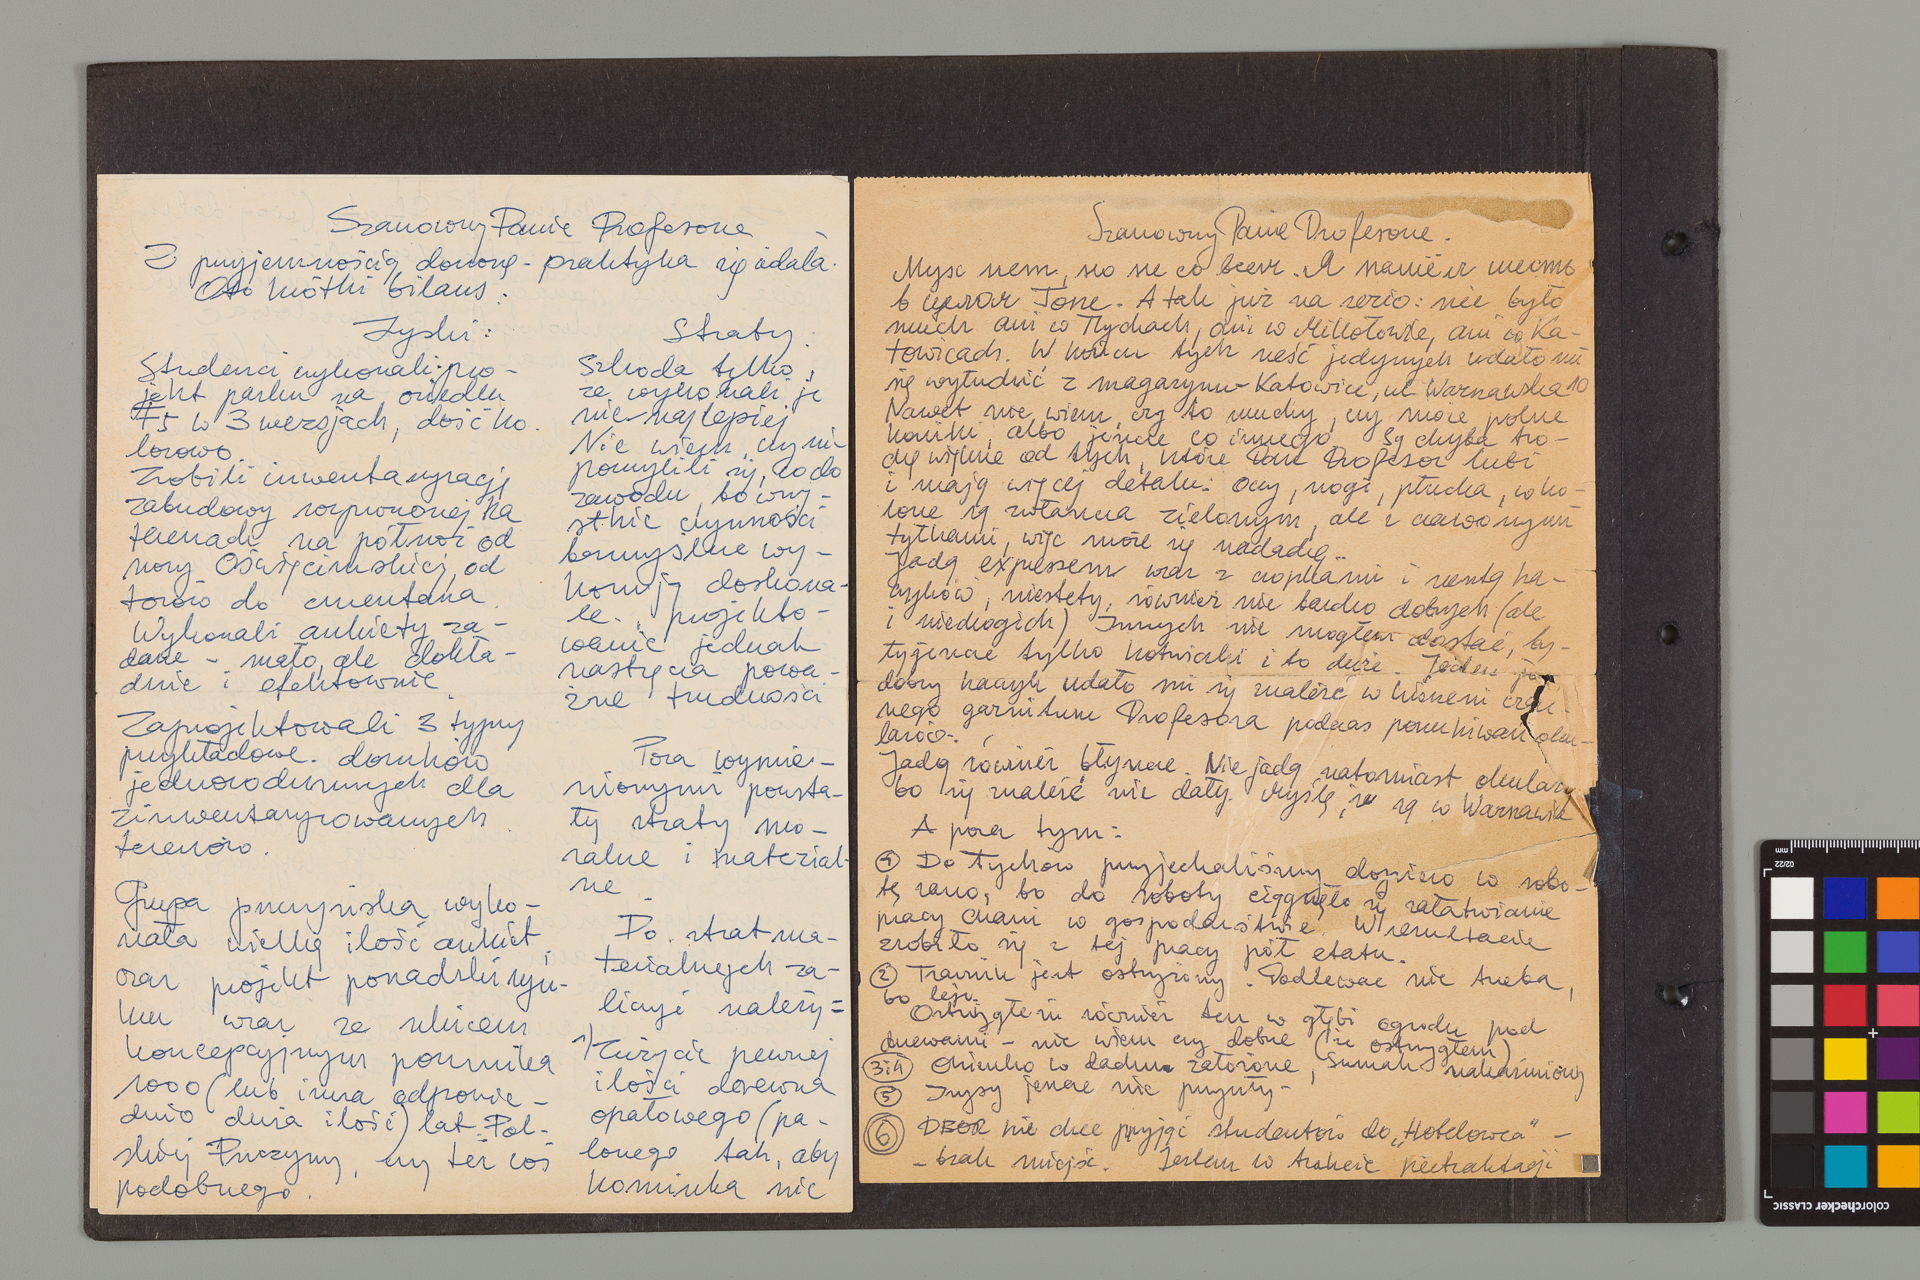 Szanowny Panie Profesorze
Z przyjemnością donoszę - praktyka się udała.
Oto krótki bilans:
Zyski:
Studenci wykonali: pro-
jekt parku na osiedlu
F5 w 3 wersjach, dość ko-
lorowo.
Zrobili inwentaryzację
zabudowy rozproszonej na
terenach na północ od
szosy Oświęcimskiej, od
torów do cmentarza.
Wykonali ankiety za-
dane - mało, ale dokła-
dnie i efektownie.
Zaprojektowali 3 typy
przykładowe domków
jednorodzinnych dla
zinwentaryzowanych
terenów.
Grupa pszczyńska wyko-
nała wielką ilość ankiet
oraz projekt ponadskiryju-
ku wraz ze szkicem
koncepcyjnym pomnika
1000 (lub inna odpowie-
dnio duża ilość) lat Pol-
skiej Pszczyny, czy też coś
podobnego.
Straty:
Szkoda tylko,
że wykonali je
nie najlepiej
Nie wiem, czy nie
pomylili się, co do
zawodu, bo wszy-
stkie czynności
bezmyślne wy-
konują doskona-
le, projekto-
wanie jednak
nastręcza powa-
żne trudności
Poza wymie-
nionymi powsta-
ły straty mo-
ralne i material-
ne.
Do strat ma-
terialnych za-
liczyć należy:
1) Zużycie pewnej
ilości drewna
opałowego (pa-
lonego tak, aby
kominka nie
Szanowny Panie Profesorze.
Мух нем, но не со всем. А
в целом Tone. A tak już na serio: nie było
much ani w Tychach, ani w Mikołowie, ani w Ka-
towicach. W końcu tych sześć jedynych udało mi
się wyłudzić z magazynu Katowice, ul. Warszawska 10
Nawet nie wiem, czy to muchy, czy może polne
koniki, albo jeszcze co innego. Są chyba tro-
chę większe od tych, które Pan Profesor lubi
i mają więcej detalu: oczy, nogi, płucka, wko-
lone są zwłaszcza zielonym, ale i czerwonymi
tyłkami, więc może się nadadzą.
Jadą expressem wraz z czopkami i resztą ha-
czyków, niestety, również nie bardzo dobrych (ale
i niedrogich) Innych nie mogłem dostać, by-
ły jeszcze tylko kotwiczki i to duże. Jeden
dobry haczyk udało mi się znaleźć w kieszeni czar-
nego garnituru Profesora podczas poszukiwań oku-
larów.
Jadą również błyszcze. Nie jadą natomiast okulary
bo się znaleźć nie dały. Myślę, że są w Warszawie
A poza tym:
① Do Tychów przyjechaliśmy dopiero w sobo-
tę rano, bo do soboty ciągnęło się załatwianie
pracy Chani w gospodarstwie. W rezultacie
zrobiło się z tej pracy pół etatu.
② Trawnik jest ostrzyżony. Podlewać nie trzeba,
bo leje.
Ostrzygłem również ten w głębi ogrodu pod
drzewami - nie wiem czy dobrze (że ostrzygłem)
③ i 4 Okienko w dachu założone, Sumak nakarmiony
⑤ Irysy jeszcze nie przyszły -
⑥ DBOR nie chce przyjąć studentów do „Hotelowca" -
- brak miejsc. Jestem w trakcie pertraktacji
mm
02/22
colorchecker CLASSIC